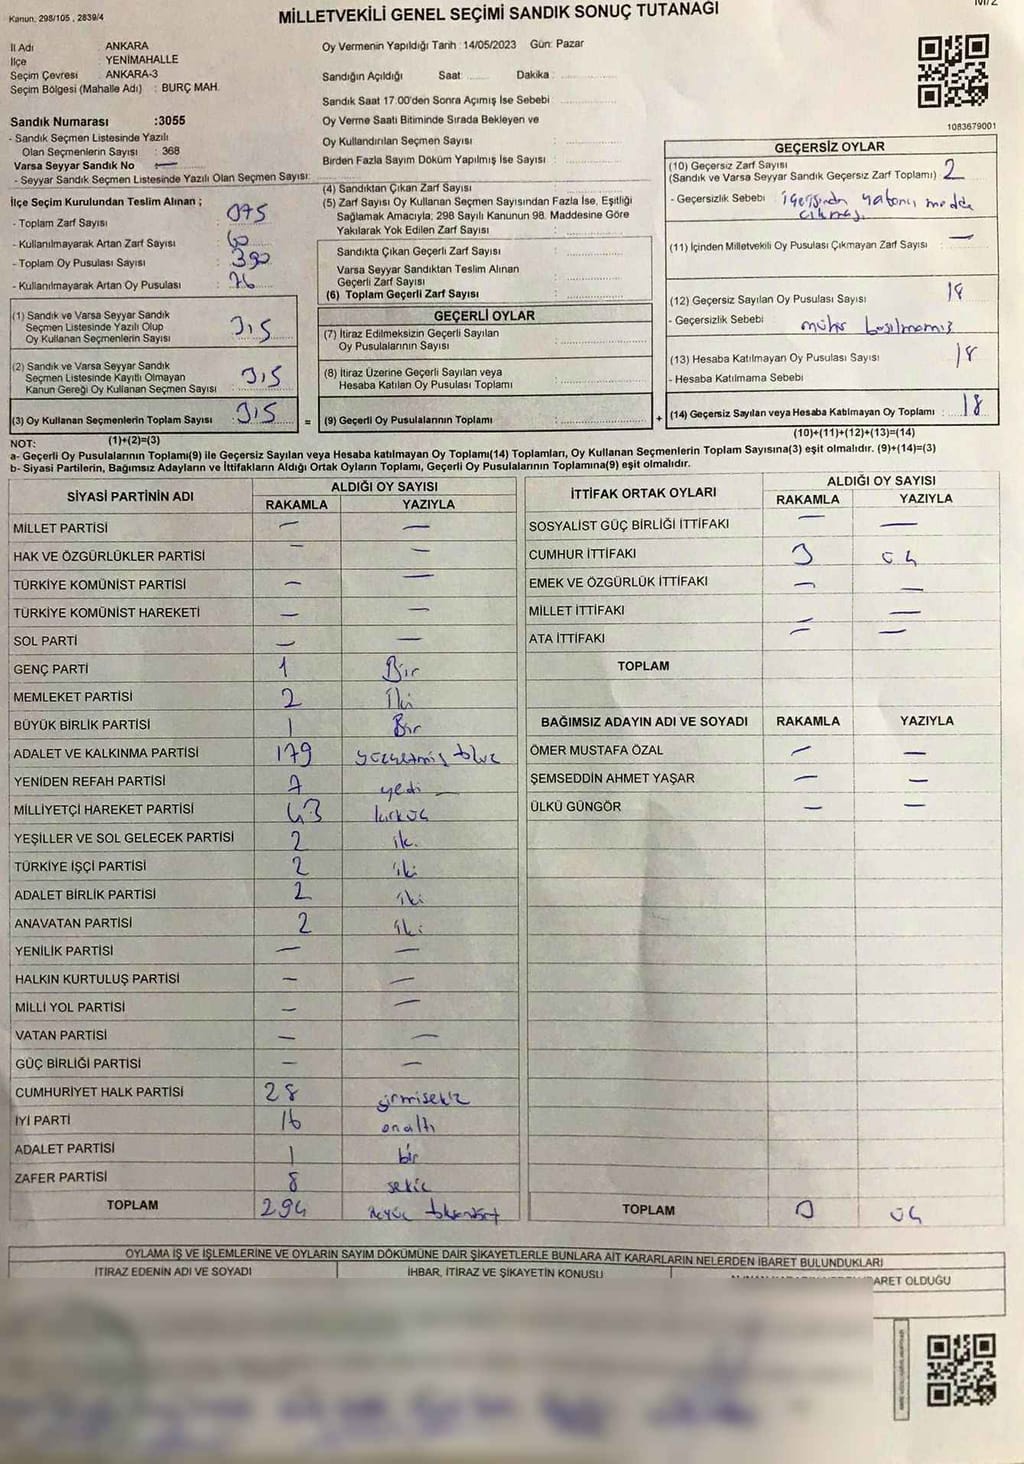 Kanun, 298/105 , 2839/4
MİLLETVEKİLİ GENEL SEÇİMİ SANDIK SONUÇ TUTANAĞI
İl Adı : ANKARA
İlçe : YENİMAHALLE
Seçim Çevresi : ANKARA-3
Seçim Bölgesi (Mahalle Adı) : BURÇ MAH.
Sandık Numarası :3055
- Sandık Seçmen Listesinde Yazılı
Olan Seçmenlerin Sayısı : 368
Varsa Seyyar Sandık No —
- Seyyar Sandık Seçmen Listesinde Yazılı Olan Seçmen Sayısı:
Oy Vermenin Yapıldığı Tarih :14/05/2023 Gün: Pazar
Sandığın Açıldığı Saat: Dakika :
Sandık Saat 17.00'den Sonra Açımış İse Sebebi
Oy Verme Saati Bitiminde Sırada Bekleyen ve
Oy Kullandırılan Seçmen Sayısı :
Birden Fazla Sayım Döküm Yapılmış İse Sayısı :
1083679001
İlçe Seçim Kurulundan Teslim Alınan ;
- Toplam Zarf Sayısı : 375
- Kullanılmayarak Artan Zarf Sayısı : 60
- Toplam Oy Pusulası Sayısı : 390
- Kullanılmayarak Artan Oy Pusulası : 76
(1) Sandık ve Varsa Seyyar Sandık
Seçmen Listesinde Yazılı Olup
Oy Kullanan Seçmenlerin Sayısı : 315
(2) Sandık ve Varsa Seyyar Sandık
Seçmen Listesinde Kayıtlı Olmayan
Kanun Gereği Oy Kullanan Seçmen Sayısı : 315
(3) Oy Kullanan Seçmenlerin Toplam Sayısı : 315
(1)+(2)=(3)
(4) Sandıktan Çıkan Zarf Sayısı :
(5) Zarf Sayısı Oy Kullanan Seçmen Sayısından Fazla İse, Eşitliği
Sağlamak Amacıyla; 298 Sayılı Kanunun 98. Maddesine Göre
Yakılarak Yok Edilen Zarf Sayısı :
Sandıkta Çıkan Geçerli Zarf Sayısı :
Varsa Seyyar Sandıktan Teslim Alınan
Geçerli Zarf Sayısı :
(6) Toplam Geçerli Zarf Sayısı :
GEÇERLİ OYLAR
(7) İtiraz Edilmeksizin Geçerli Sayılan
Oy Pusulalarının Sayısı :
(8) İtiraz Üzerine Geçerli Sayılan veya
Hesaba Katılan Oy Pusulası Toplamı :
= (9) Geçerli Oy Pusulalarının Toplamı : +
GEÇERSİZ OYLAR
(10) Geçersiz Zarf Sayısı
(Sandık ve Varsa Seyyar Sandık Geçersiz Zarf Toplamı) : 2
- Geçersizlik Sebebi : içerisinden yabancı madde
çıkması
(11) İçinden Milletvekili Oy Pusulası Çıkmayan Zarf Sayısı : —
(12) Geçersiz Sayılan Oy Pusulası Sayısı : 18
- Geçersizlik Sebebi : mühür basılmamış
(13) Hesaba Katılmayan Oy Pusulası Sayısı : 18
- Hesaba Katılmama Sebebi
(14) Geçersiz Sayılan veya Hesaba Katılmayan Oy Toplamı : 18
(10)+(11)+(12)+(13)=(14)
NOT:
a- Geçerli Oy Pusulasının Toplamı(9) ile Geçersiz Sayılan veya Hesaba katılmayan Oy Toplamı(14) Toplamları, Oy Kullanan Seçmenlerin Toplam Sayısına(3) eşit olmalıdır. (9)+(14)=(3)
b- Siyasi Partilerin, Bağımsız Adayların ve İttifakların Aldığı Ortak Oyların Toplamı, Geçerli Oy Pusulalarının Toplamına(9) eşit olmalıdır.
SİYASİ PARTİNİN ADI ALDIĞI OY SAYISI
RAKAMLA YAZIYLA
MİLLET PARTİSİ — —
HAK VE ÖZGÜRLÜKLER PARTİSİ — —
TÜRKİYE KOMÜNİST PARTİSİ — —
TÜRKİYE KOMÜNİST HAREKETİ — —
SOL PARTİ — —
GENÇ PARTİ 1 Bir
MEMLEKET PARTİSİ 2 İki
BÜYÜK BİRLİK PARTİSİ 1 Bir
ADALET VE KALKINMA PARTİSİ 179 yüzyetmiş dokuz
YENİDEN REFAH PARTİSİ 7 yedi —
MİLLİYETÇİ HAREKET PARTİSİ 43 kırküç
YEŞİLLER VE SOL GELECEK PARTİSİ 2 iki
TÜRKİYE İŞÇİ PARTİSİ 2 iki
ADALET BİRLİK PARTİSİ 2 iki
ANAVATAN PARTİSİ 2 iki
YENİLİK PARTİSİ — —
HALKIN KURTULUŞ PARTİSİ — —
MİLLİ YOL PARTİSİ — —
VATAN PARTİSİ — —
GÜÇ BİRLİĞİ PARTİSİ — —
CUMHURİYET HALK PARTİSİ 28 yirmisekiz
İYİ PARTİ 16 onaltı
ADALET PARTİSİ 1 bir
ZAFER PARTİSİ 8 sekiz
TOPLAM 294 ikiyüz doksandört
İTTİFAK ORTAK OYLARI ALDIĞI OY SAYISI
RAKAMLA YAZIYLA
SOSYALİST GÜÇ BİRLİĞİ İTTİFAKI — —
CUMHUR İTTİFAKI 3 üç
EMEK VE ÖZGÜRLÜK İTTİFAKI — —
MİLLET İTTİFAKI — —
ATA İTTİFAKI — —
TOPLAM
BAĞIMSIZ ADAYIN ADI VE SOYADI RAKAMLA YAZIYLA
ÖMER MUSTAFA ÖZAL — —
ŞEMSEDDİN AHMET YAŞAR — —
ÜLKÜ GÜNGÖR — —
TOPLAM 3 üç
OYLAMA İŞ VE İŞLEMLERİNE VE OYLARIN SAYIM DÖKÜMÜNE DAİR ŞİKAYETLERLE BUNLARA AİT KARARLARIN NELERDEN İBARET BULUNDUKLARI
İTİRAZ EDENİN ADI VE SOYADI İHBAR, İTİRAZ VE ŞİKAYETİN KONUSU
OLDUĞU